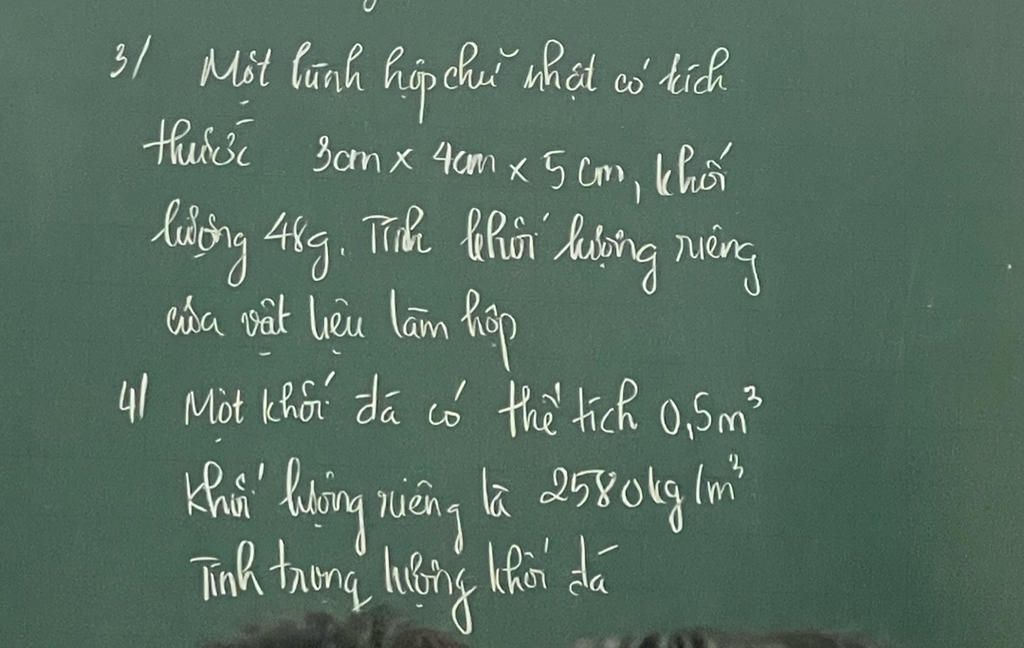 3/ Một hình hộp chữ nhật có kích
thước 3cm x 4cm x 5cm, khối
lượng 48g. Tính khối lượng riêng
của vật liệu làm hộp
4/ Một khối đá có thể tích 0,5m³
khối lượng riêng là 2580kg/m³
Tính trọng lượng khối đá